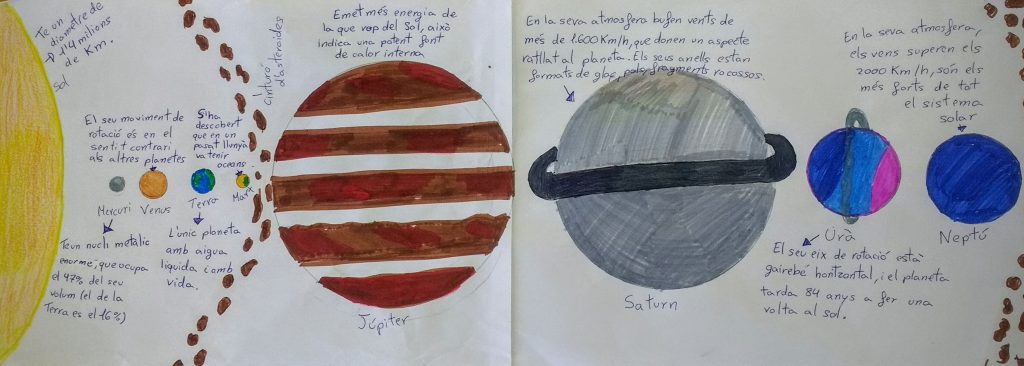 Te un
diametre de
d'1'4 milions
de Km.
sol
El seu moviment de
rotació és en el
sentit contrari
als altres planetes
S'ha
descobert
que en un
pasat llunyà
va tenir
oceans.
cinturó
d'asteroides
Mercuri
Venus
Terra
Mart
Te un nucli metàlic
enorme, que ocupa
el 47% del seu
volum (el de la
Terra es el 16%)
L'únic planeta
amb aigua
líquida i amb
vida.
Emet més energia de
la que rep del Sol, això
indica una potent font
de calor interna
Júpiter
En la seva atmosfera bufen vents de
més de 1.600 Km/h, que donen un aspecte
ratllat al planeta. Els seus anells estan
formats de glaç, pols, fragments rocossos.
Saturn
En la seva atmosfera,
els vens superen els
2000 Km/h, són els
més forts de tot
el sistema
solar
Urà
Neptú
El seu eix de rotació està
gairebé horitzontal, i el planeta
tarda 84 anys a fer una
volta al sol.